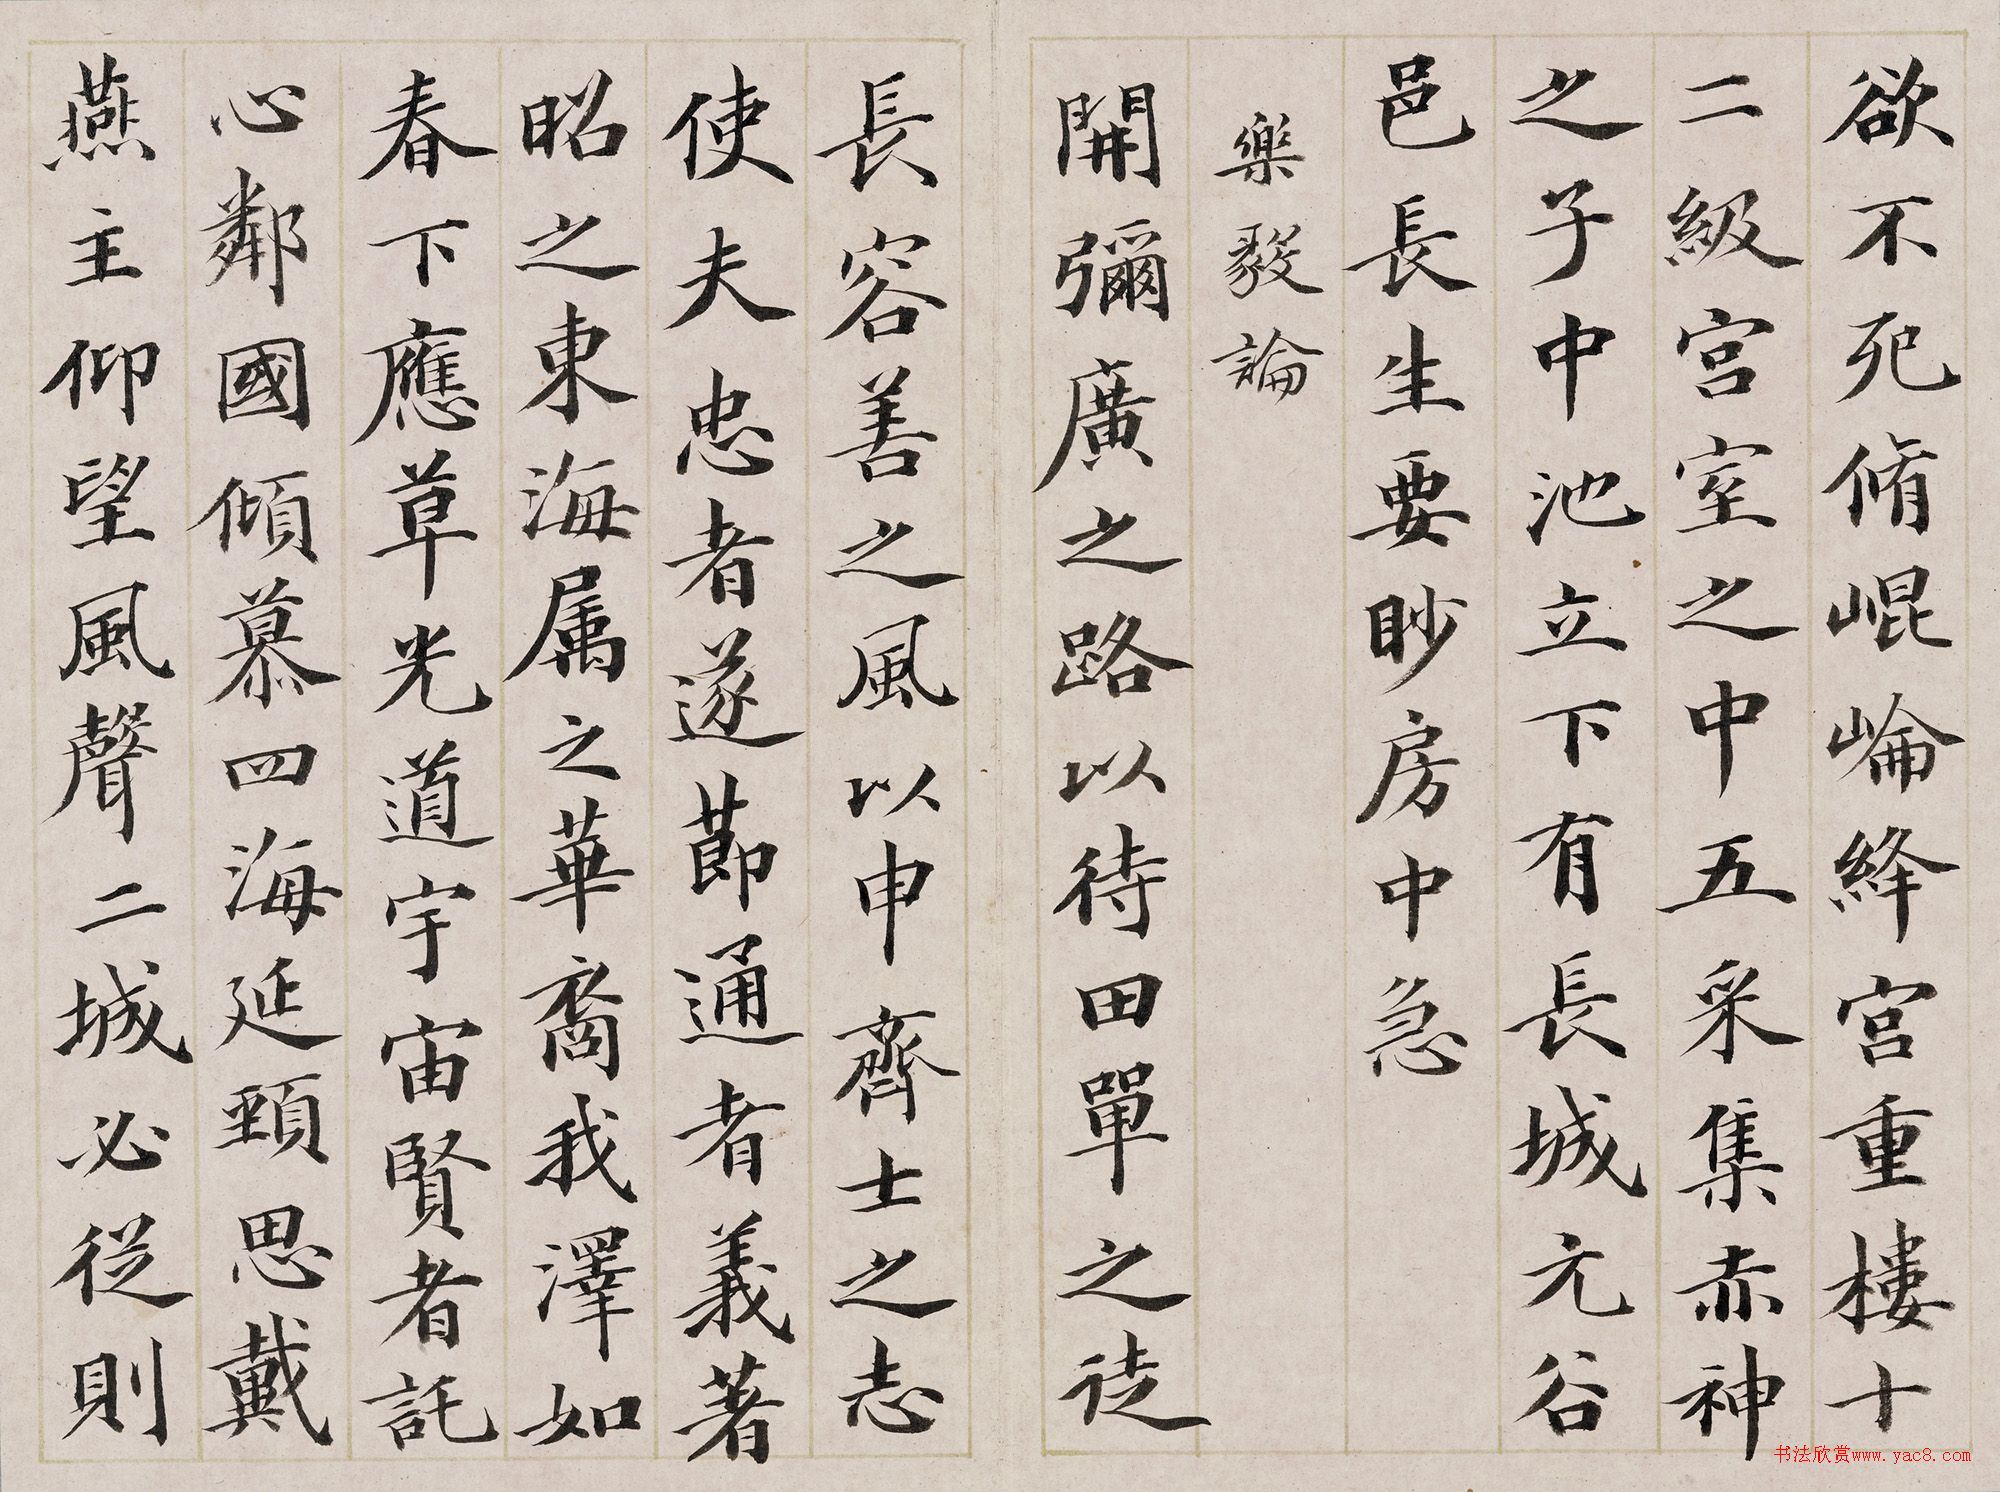 欲不死脩崐崘絳宫重樓十
二級宫室之中五采集赤神
之子中池立下有長城元谷
邑長生要眇房中急
樂毅論
開彌廣之路以待田單之徒
長容善之風以申齊士之志
使夫忠者遂節通者義著
昭之東海属之華裔我澤如
春下應草光道宇宙賢者託
心鄰國傾慕四海延頸思戴
燕主仰望風聲二城必從則
书法欣赏www.yac8.com